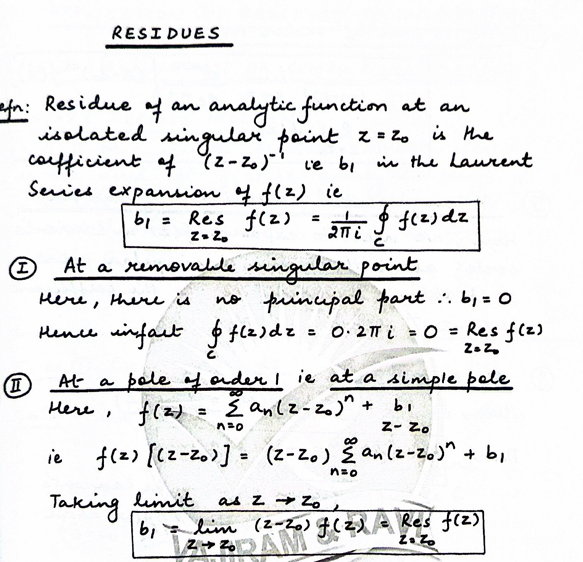 RESIDUES
efn: Residue of an analytic function at an
isolated singular point z = z₀ is the
coefficient of (z-z₀)⁻¹ ie b₁ in the Laurent
Series expansion of f(z) ie
b₁ = Res_{z=z₀} f(z) = 1/2πi ∮_C f(z)dz
Ⅰ At a removable singular point
Here, there is no principal part ∴ b₁ = 0
Hence infact ∮_C f(z)dz = 0·2πi = 0 = Res_{z=z₀} f(z)
Ⅱ At a pole of order 1 ie at a simple pole
Here, f(z) = ∑_{n=0}^{∞} aₙ(z-z₀)ⁿ + b₁/(z-z₀)
ie f(z) [(z-z₀)] = (z-z₀) ∑_{n=0}^{∞} aₙ(z-z₀)ⁿ + b₁
Taking limit as z → z₀,
b₁ = lim_{z→z₀} (z-z₀) f(z) = Res_{z=z₀} f(z)
VAJIRAM & RAVI